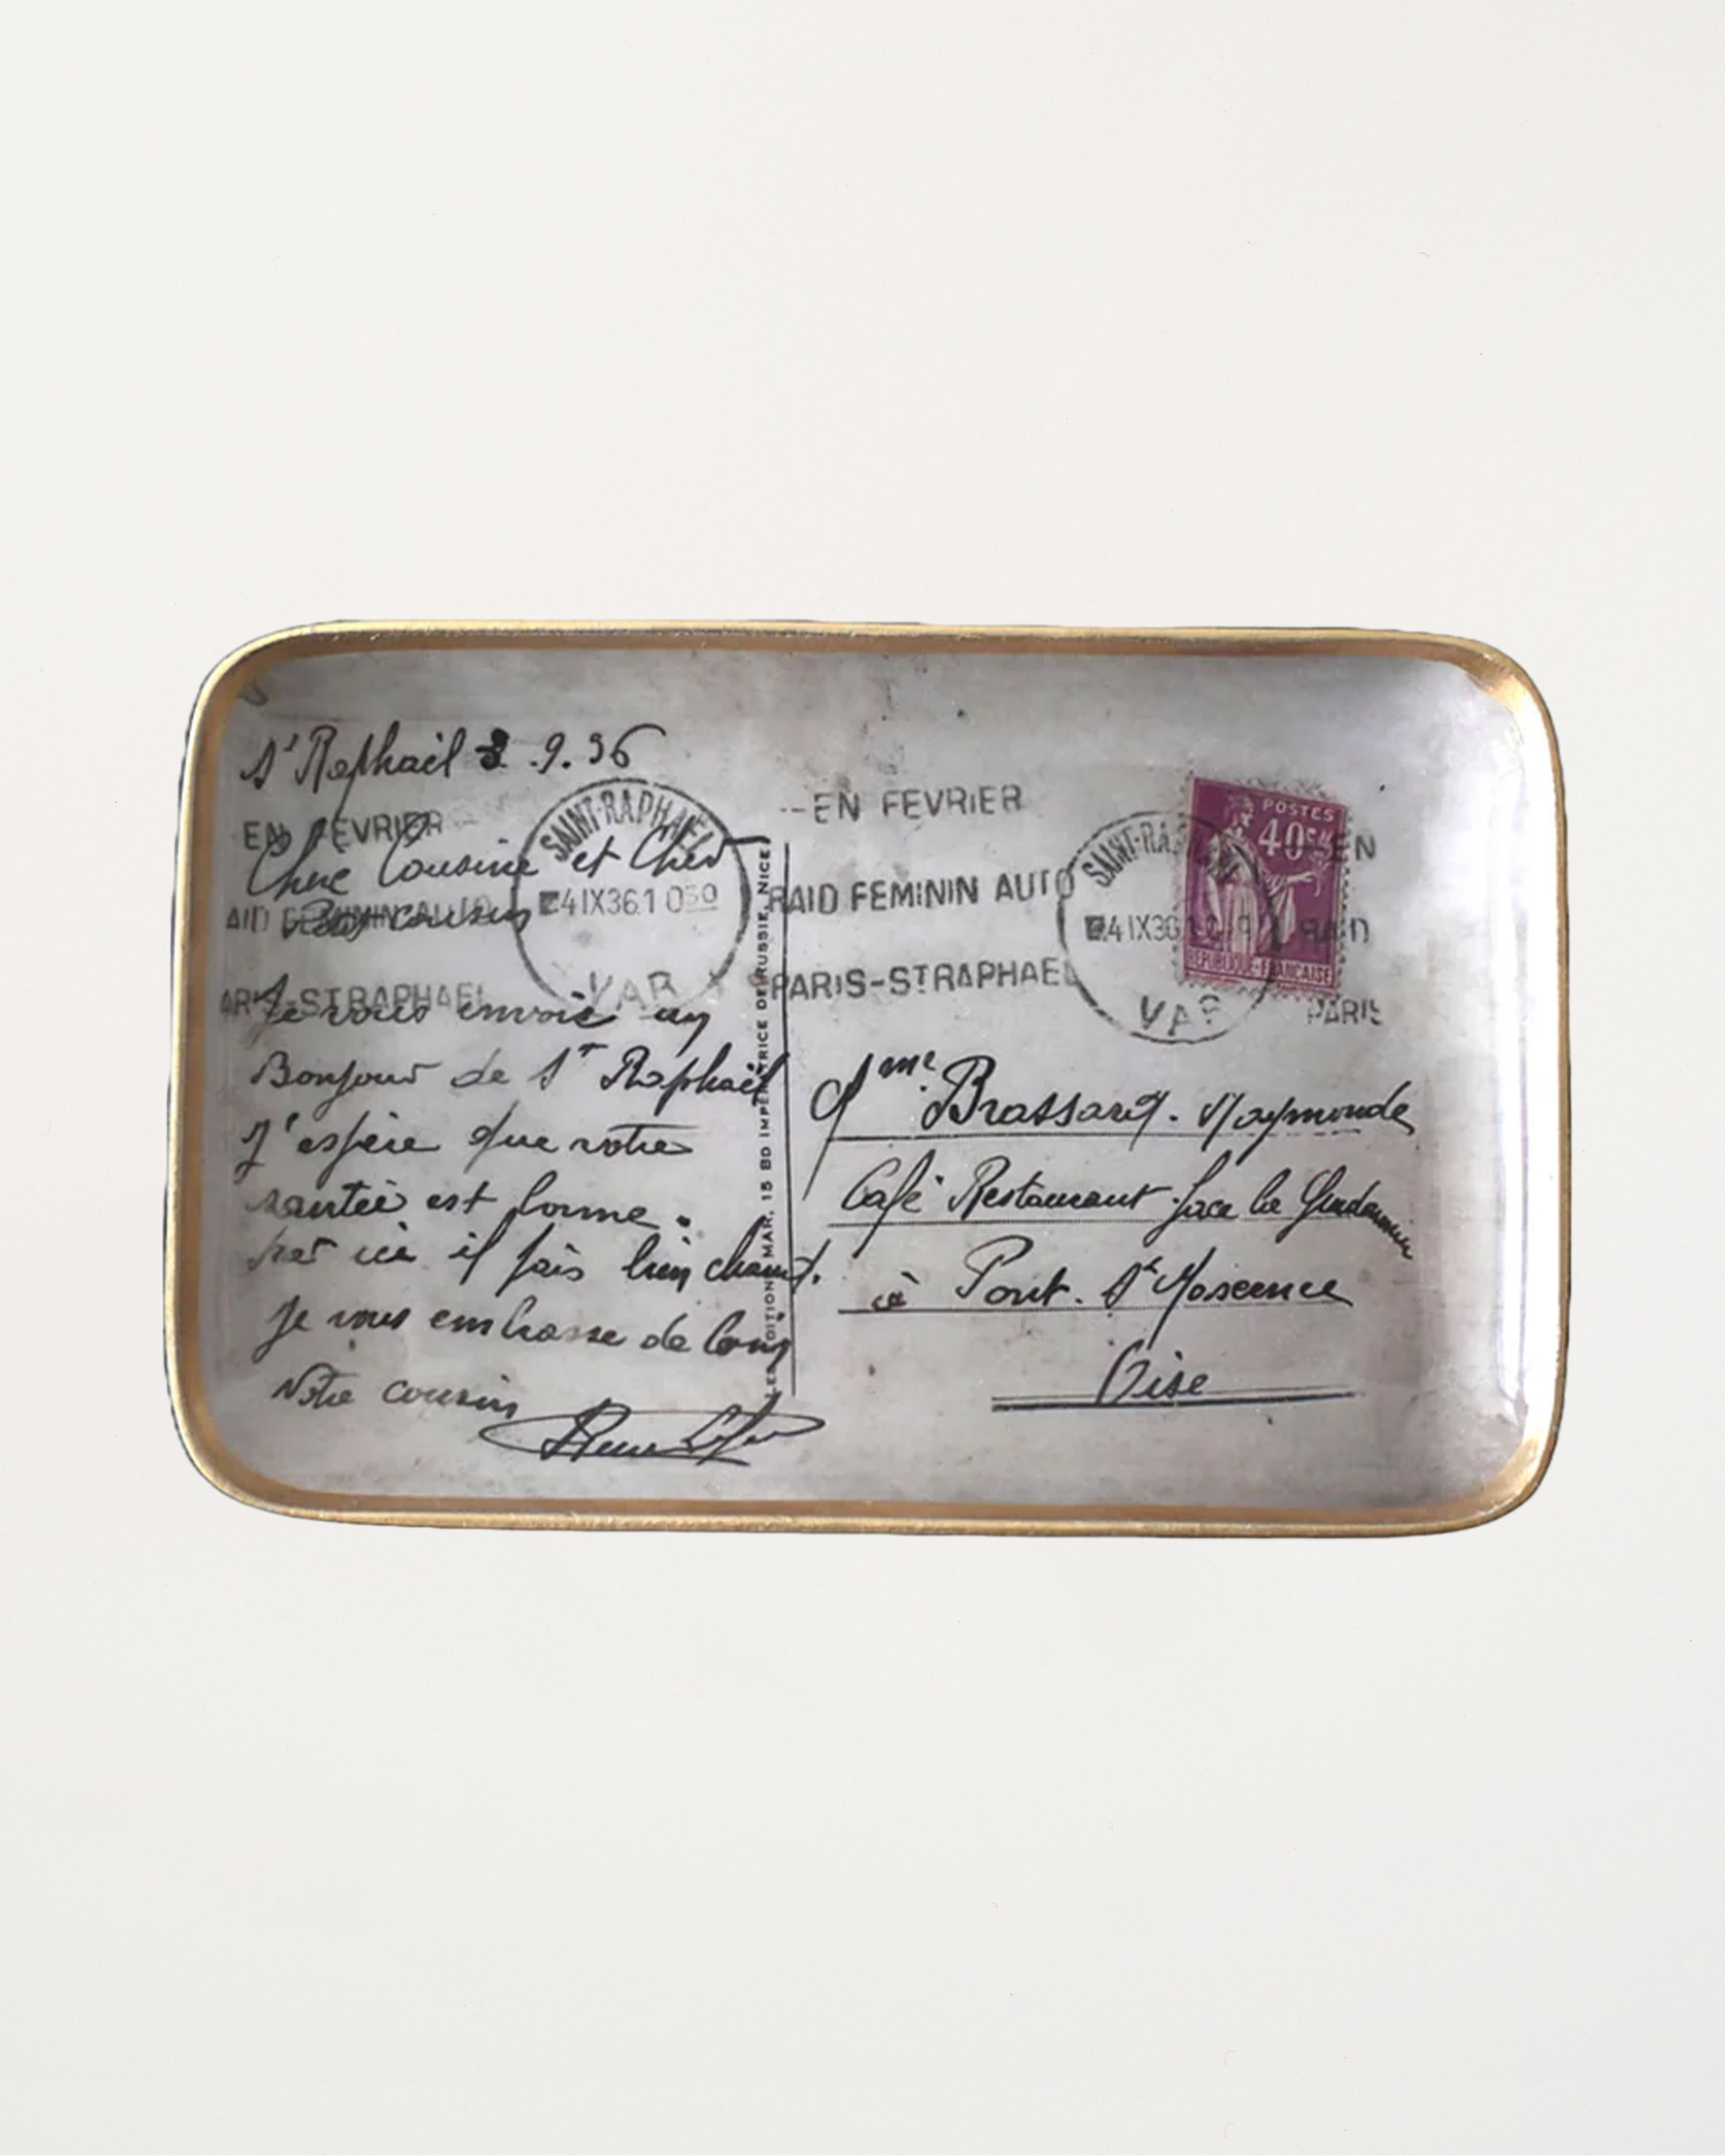 St Raphaël 3.9.36
Chère Cousine et Cher
cousin
Je vous envoie un
Bonjour de St Raphaël
J'espère que votre
santée est bonne.
par ici il fais bien chaud.
Je vous embrasse de loin
Votre cousin
EN FEVRIER
AID FEMININ AUTO
ARIS-ST RAPHAEL
SAINT-RAPHAEL
4 IX 36.1 0
VAR
LES EDITIONS MAR, 15 BD IMPERATRICE DE RUSSIE, NICE
--EN FEVRIER
RAID FEMININ AUTO
PARIS-ST RAPHAEL
SAINT-RA
4 IX 36
VAR
POSTES
40c
REPUBLIQUE-FRANÇAISE
EN
RAID
PARIS
Mme Brassart. Raymonde
Café Restaurant face la
à Pont. Ste Maxence
Oise